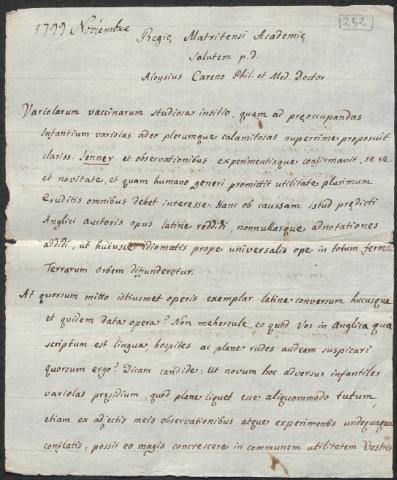 1799 Noviembre
252
Regię Matritensi Academię
Salutem p.d.
Aloysius Careno Phil. et Med. Doctor
Variolarum vaccinarum studiosa insitio, quam ad pręoccupandas
Infantium variolas adeo plerumque calamitosas nuperrime proposuit
clariss. Jenner et observationibus experimentisque confirmavit, se se
et novitate, et quam humano generi promittit utilitate plurimum
Eruditis omnibus debet interesse. Hanc ob caussam istud prędicti
Anglici auctoris opus latine reddidi, nonnullasque adnotationes
addidi, ut huiusce idiomatis prope universalis ope in totum ferme
Terrarum orbem difunderetur.
At quorsum mitto istiusmet operis exemplar latine conversum hucusque
et quidem data opera? Non mehercule eo quod Vos in Anglica qua
scriptum est lingua hospites ac plane rudes audeam suspicari
quorsum ergo? Dicam candide: Ut novum hoc adversus infantiles
variolas pręsidium, quod plane liquet esse aliquommodo tutum,
etiam ex adjectis meis observationibus atque experimentis undequaque
conflatis, possit eo magis concrescere in communem utilitatem Vestris